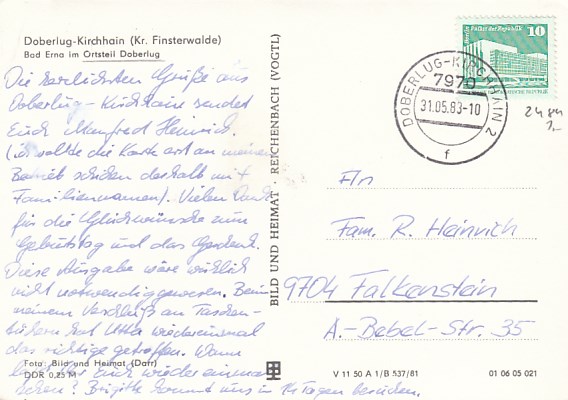 Doberlug-Kirchhain (Kr. Finsterwalde)
Bad Erna im Ortsteil Doberlug
Die herzlichsten Grüße aus
Doberlug-Kirchhain sendet
Euch Manfred Heinrich.
(ich wollte die Karte erst an meinen
Betrieb schicken deshalb mit
Familiennamen). Vielen Dank
für die Glückwünsche zum
Geburtstag und das Geschenk.
Diese Ausgabe wäre wirklich
nicht notwendig gewesen. Beim
meinem Verschleiß an Taschen-
tüchern hat Utta wiedereinmal
das richtige getroffen. Wann
Euch wieder einmal
sehen? Brigitte kommt uns in 14 Tagen besuchen.
Foto: Bild und Heimat (Darr)
DDR 0,25 M
BILD UND HEIMAT · REICHENBACH (VOGTL)
V 11 50 A 1/B 537/81
01 06 05 021
10
DOBERLUG-KIRCHHAIN 2
7970
31.05.83-10
f
2484
1,-
An
Fam. R. Heinrich
9704 Falkenstein
A.-Bebel-Str. 35